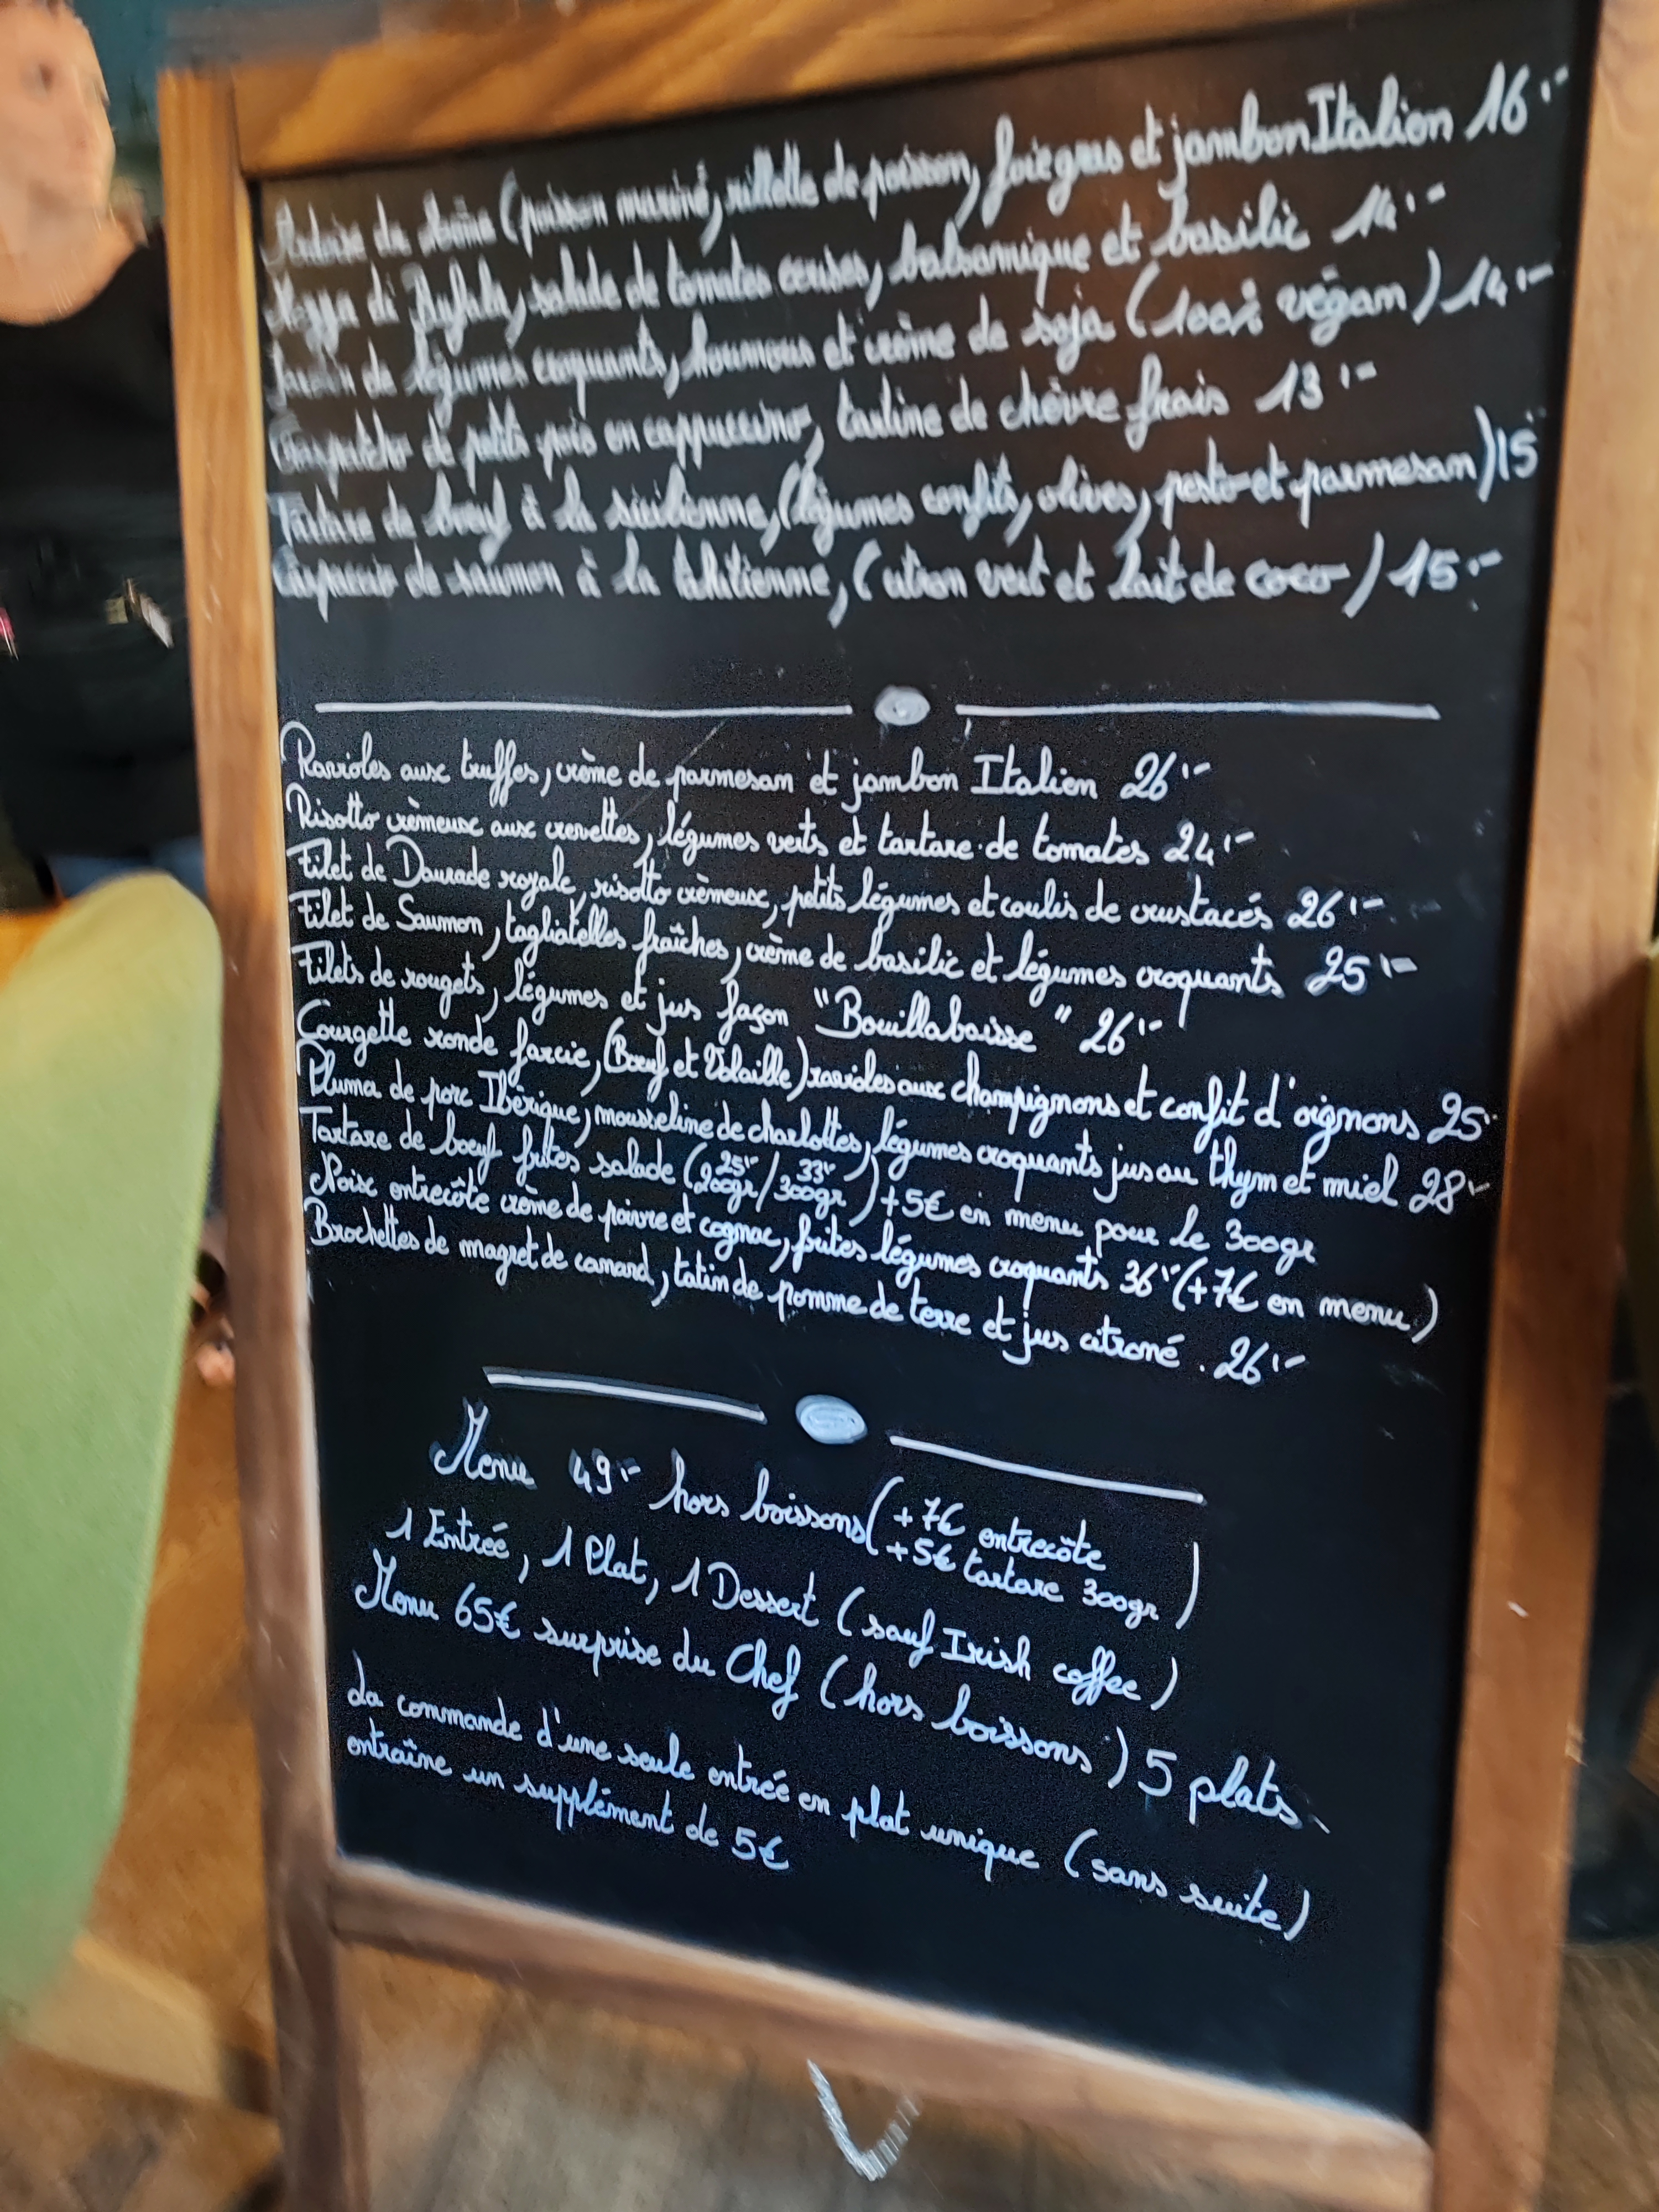 Ardoise du (poisson mariné, rillette de poisson, foie gras et jambon Italien 16.-
Mozza di Bufala, salade de tomates cerises, balsamique et basilic 14.-
Jardin de légumes croquants, houmous et crème de soja (100% végan) 14.-
Gaspacho de petits pois en cappuccino, tartine de chèvre frais 13.-
Tartare de bœuf à la sicilienne, (légumes confits, olives, pesto et parmesan) 15
Carpaccio de saumon à la tahitienne, (citron vert et lait de coco) 15.-
Ravioles aux truffes, crème de parmesan et jambon Italien 26.-
Risotto crèmeux aux crevettes, légumes verts et tartare de tomates 24.-
Filet de Daurade royale, risotto crèmeux, petits légumes et coulis de crustacés 26.-
Filet de Saumon, tagliatelles fraîches, crème de basilic et légumes croquants 25.-
Filets de rougets, légumes et jus façon "Bouillabaisse" 26.-
Courgette ronde farcie, (Bœuf et Volaille) ravioles aux champignons et confit d'oignons 25.
Pluma de porc Ibèrique, mousseline de charlottes, légumes croquants jus au thym et miel 28.-
Tartare de bœuf frites salade (25.- 200gr / 33.- 300gr) +5€ en menu pour le 300gr
Noix entrecôte crème de poivre et cognac, frites légumes croquants 36.- (+7€ en menu)
Brochettes de magret de canard, tatin de pomme de terre et jus citroné. 26.-
Menu 49.- hors boissons (+7€ entrecôte
+5€ tartare 300gr)
1 Entrée, 1 Plat, 1 Dessert (sauf Irish coffee)
Menu 65€ surprise du Chef (hors boissons) 5 plats.
La commande d'une seule entrée en plat unique (sans suite)
entraîne un supplément de 5€